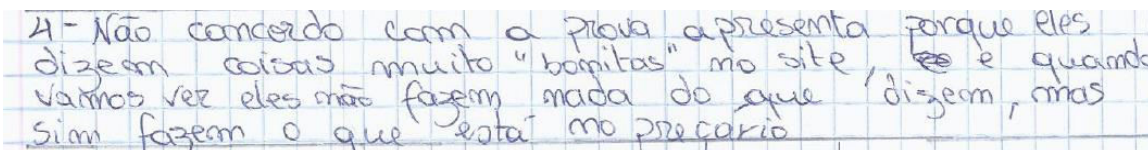 4- Não concordo com a prova apresenta porque eles
dizem coisas muito "bonitas" no site, e quando
vamos ver eles não fazem nada do que dizem, mas
sim fazem o que está no preçário